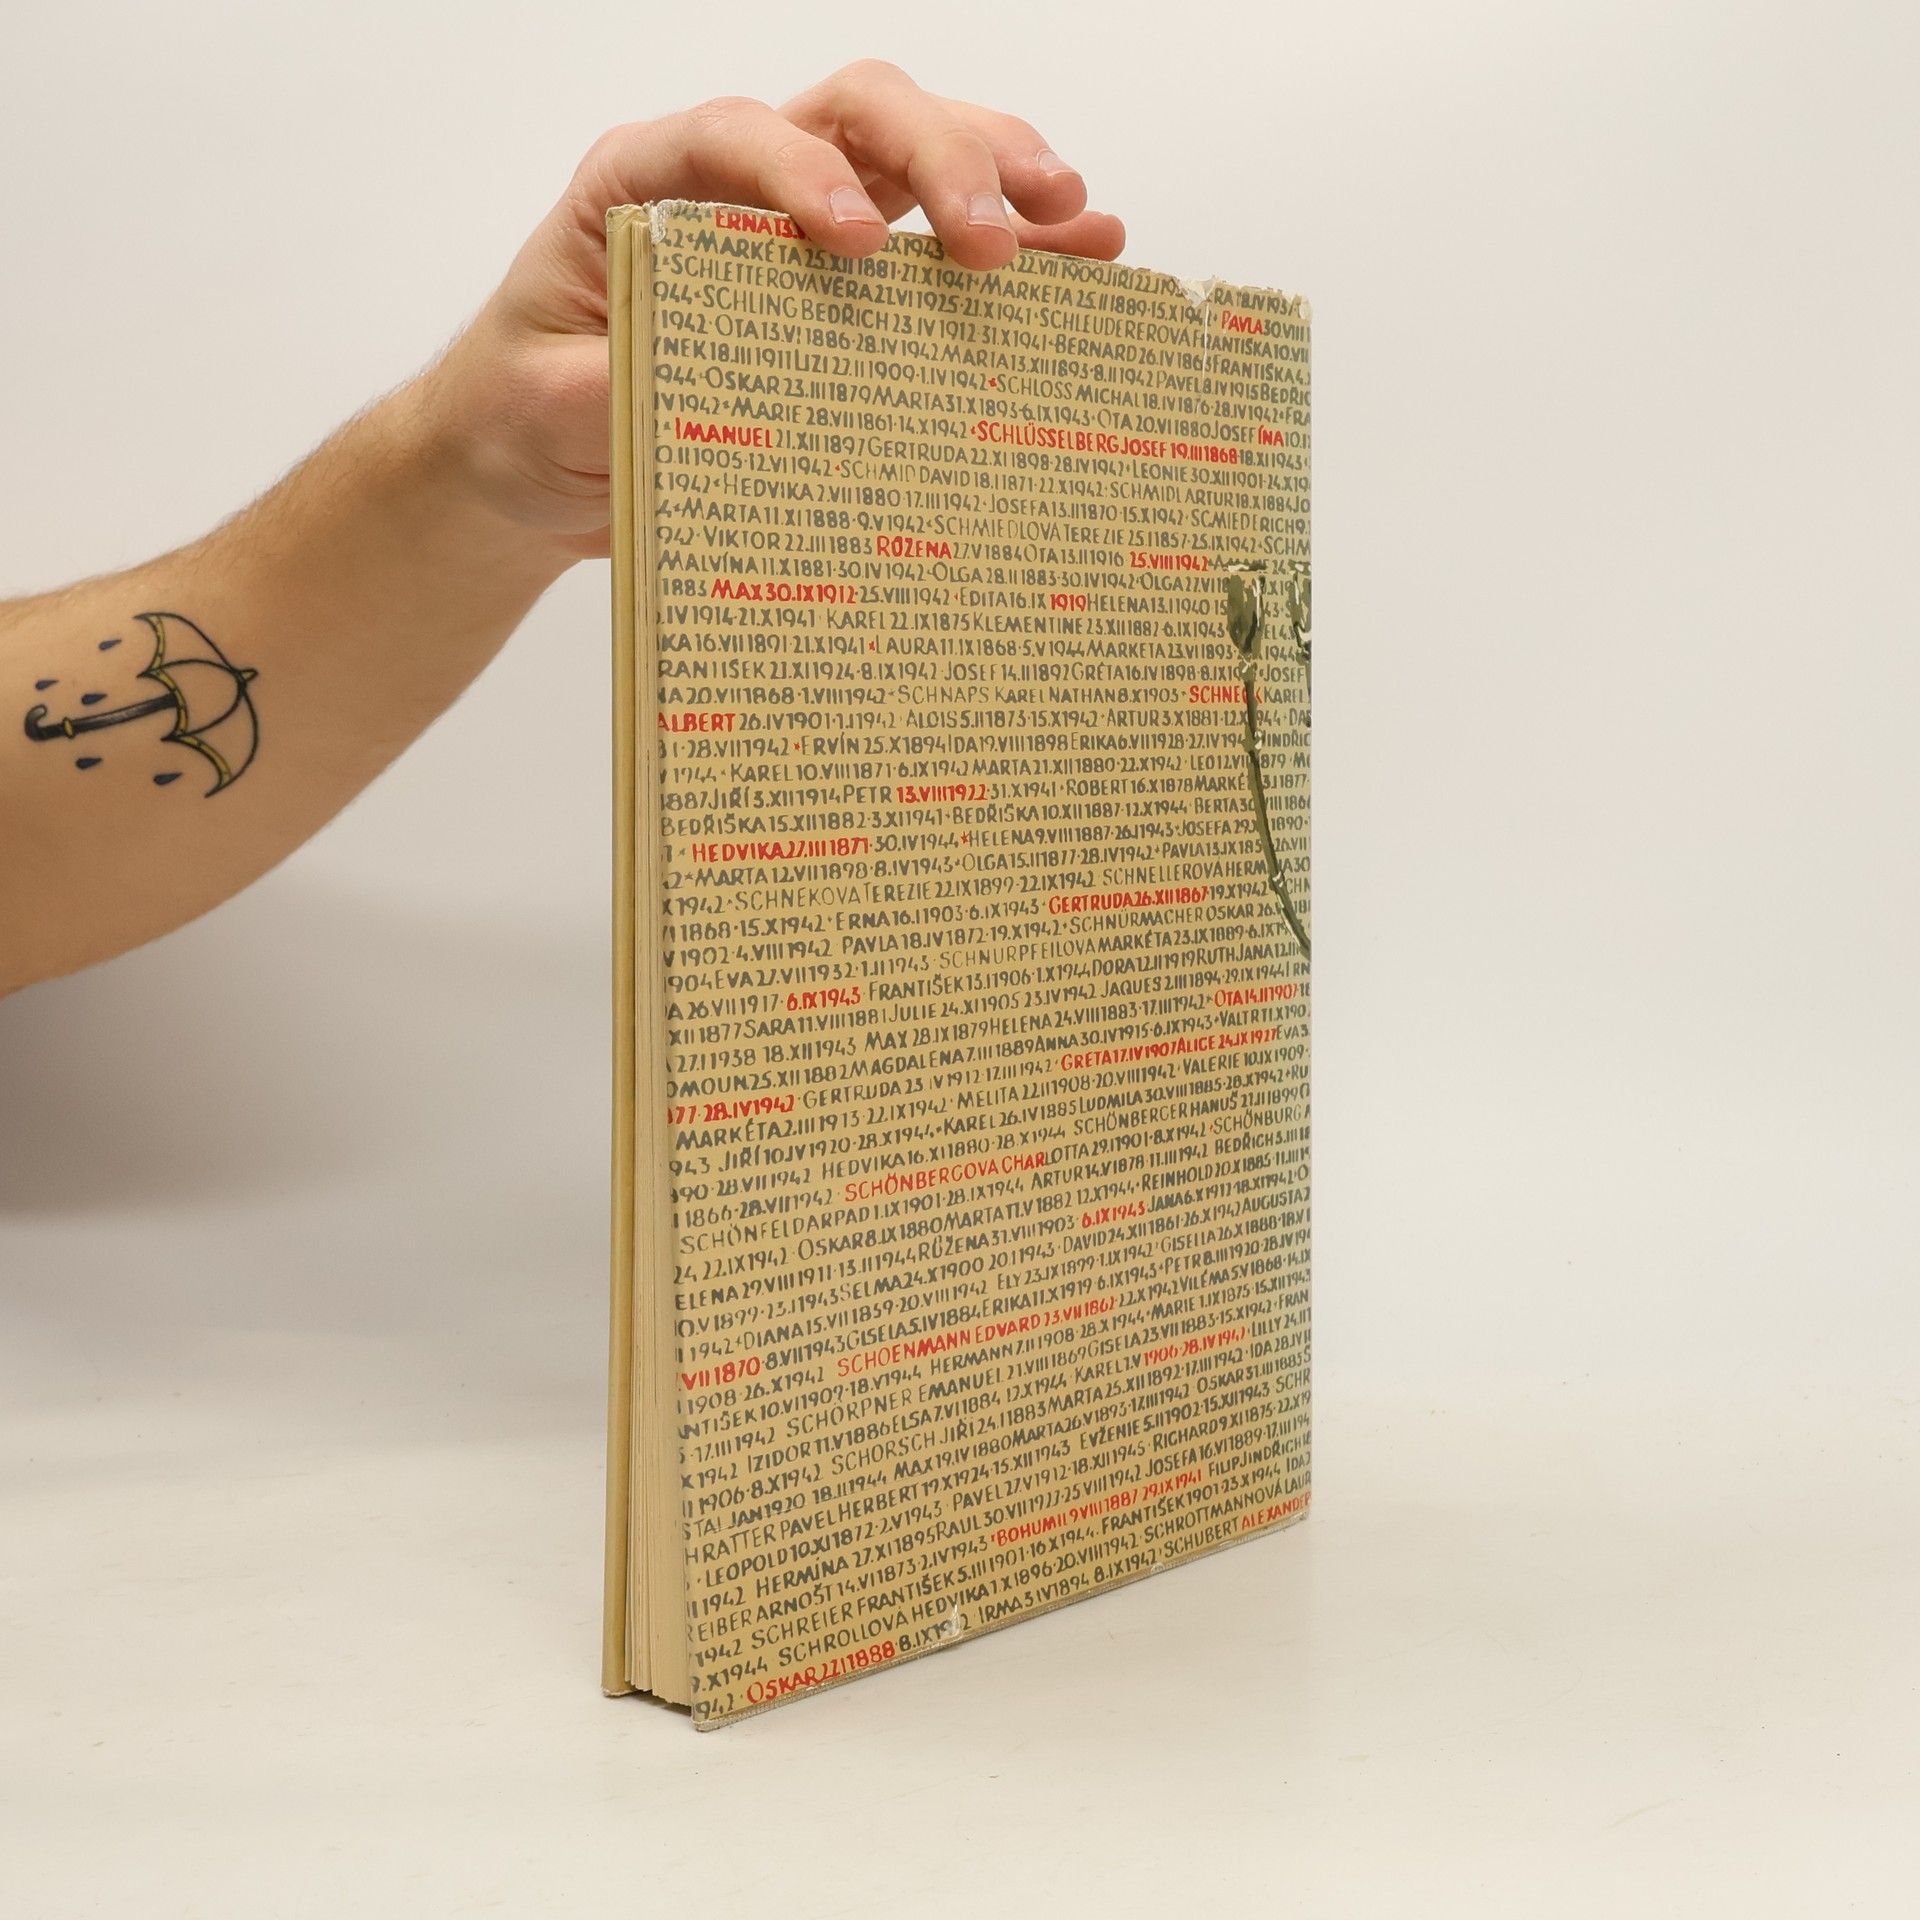 ERNA 13. IX 1943 22.VII 1909 JIŘÍ
MARKÉTA 25.XII 1881·21.X 1941·MARKETA 25.II 1889·15.X 194 PAVLA 30.VIII
SCHLETTEROVA VĚRA 21.VI 1925·21.X 1941·SCHLEUDEREROVÁ FRANTIŠKA 10.VII
944·SCHLING BEDŘICH 23.IV 1912·31.X 1941·BERNARD 26.IV 1863 FRANTIŠKA 4.
1942·OTA 13.VI 1886·28.IV 1942 MARIA 13.XII 1893·8.II 1942 PAVEL 8.IV 1915 BEDŘIC
YNEK 18.III 1911 LIZI 27.II 1909·1.IV 1942*SCHLOSS MICHAL 18.IV 1876·28.IV 1942·FRA
944·OSKAR 23.III 1879 MARTA 31.X 1893·6.IX 1943·OTA 20.VII 1880 JOSEFÍNA 10.
IV 1942·MARIE 28.VII 1861·14.X 1942·SCHLÜSSELBERG JOSEF 19.III 1868·18.XI 1943
IMANUEL 21.XII 1897 GERTRUDA 22.XI 1898·28.IV 1942·LEONIE 30.XII 1901·24.X 19
0.II 1905·12.VI 1942·SCHMID DAVID 18.I 1871·22.X 1942·SCHMIDL ARTUR 18.X 1884 JO
X 1942·HEDVIKA 2.VII 1880·17.III 1942·JOSEFA 13.II 1870·15.X 1942·SCMIEDERICH 9.
4·MARTA 11.XI 1888·9.V 1942·SCHMIEDLOVA TEREZIE 25.I 1857·25.IX 1942·SCHM
942·VIKTOR 22.III 1883 RŮŽENA 27.V 1884 OTA 13.II 1916 25.VIII 1942
MALVÍNA 11.X 1881·30.IV 1942·OLGA 28.II 1883·30.IV 1942·OLGA 27.VII
1883 MAX 30.IX 1912·25.VIII 1942·EDITA 16.IX 1919 HELENA 13.I 1940
.IV 1914·21.X 1941·KAREL 22.IX 1875 KLEMENTINE 23.XII 1882·6.IX 1943
KA 16.VII 1891·21.X 1941*LAURA 11.IX 1868·5.V 1944 MARKETA 23.VI 1893 1944
FRANTIŠEK 21.XI 1924·8.IX 1942·JOSEF 14.II 1892 GRÉTA 16.IV 1898·8.IX 19 JOSEF
NA 20.VII 1868·1.VIII 1942·SCHNAPS KAREL NATHAN 8.X 1903·SCHNECK KAREL
ALBERT 26.IV 1901·1.I 1942·ALOIS 5.II 1873·15.X 1942·ARTUR 3.X 1881·12.X 1944
28.VII 1942*ERVÍN 25.X 1894 IDA 19.VIII 1898 ERIKA 6.VII 1928·27.IV 194 JINDŘIC
V 1944·KAREL 10.VIII 1871·6.IX 1942 MARTA 21.XII 1880·22.X 1942·LEO 12.VII 1879
1887 JIŘÍ 3.XII 1914 PETR 13.VIII 1922·31.X 1941·ROBERT 16.X 1878 MARKÉ 3.I 1877
BEDŘIŠKA 15.XII 1882·3.XI 1941·BEDŘIŠKA 10.XII 1887·12.X 1944 BERTA 30.VIII 186
HEDVIKA 27.III 1871·30.IV 1944*HELENA 9.VIII 1887·26.I 1943·JOSEFA 29.X 1890
2·MARTA 12.VII 1898·8.IV 1943·OLGA 15.II 1877·28.IV 1942·PAVLA 13.IX 185 26.VII
X 1942·SCHNEKOVA TEREZIE 22.IX 1899·22.IX 1942 SCHNELLEROVÁ HERMÍNA 30
1868·15.X 1942·ERNA 16.I 1903·6.IX 1943·GERTRUDA 26.XII 1867·19.X 1942·SCHN
V 1902·4.VIII 1942 PAVLA 18.IV 1872·19.X 1942·SCHNÜRMACHER OSKAR 26.
1904 EVA 27.VII 1932·1.II 1943·SCHNURPFEILOVA MARKÉTA 23.IX 1889·6.IX 19
A 26.VII 1917·6.IX 1943·FRANTIŠEK 13.I 1906·1.X 1944 DORA 12.II 1919 RUTH JANA 12.III
XII 1877 SARA 11.VIII 1881 JULIE 24.XI 1905 23.IV 1942 JAQUES 2.III 1894·29.IX 1944 IRN
27.I 1938 18.XII 1943 MAX 28.IX 1879 HELENA 24.VIII 1883·17.III 1942·OTA 14.II 1907·
OMOUN 25.XII 1882 MAGDALENA 7.III 1889 ANNA 30.IV 1915·6.IX 1943·VALTR 11.X 190
877·28.IV 1942·GERTRUDA 23.IV 1912·17.III 1942·GRETA 17.IV 1907 ALICE 24.IX 1927 EVA 3.
MARKÉTA 2.III 1913·22.IX 1942·MELITA 22.II 1908·20.VIII 1942·VALERIE 10.IX 1909·
943 JIŘÍ 10.IV 1920·28.X 1944·KAREL 26.IV 1885 LUDMILA 30.VIII 1885·28.X 1942·RU
890·28.VII 1942 HEDVIKA 16.XI 1880·28.X 1944 SCHÖNBERGER HANUŠ 27.II 1899
1866·28.VII 1942·SCHÖNBERGOVA CHARLOTTA 29.I 1901·8.X 1942·SCHÖNBURG A
SCHÖNFELD ARPAD 1.IX 1901·28.IX 1944 ARTUR 14.V 1878·11.III 1942 BEDŘICH 3.III 18
24 22.IX 1942·OSKAR 8.IX 1880 MARTA 11.V 1882 12.X 1944·REINHOLD 20.X 1885·11.III 19
ELENA 29.VIII 1911·13.II 1944 RŮŽENA 31.VIII 1903·6.IX 1943·JANA 6.X 1917·18.XII 1942·O
0.V 1899·23.I 1943 SELMA 24.X 1900 20.I 1943·DAVID 24.XII 1861·26.X 1942 AUGUSTA 2
1942·DIANA 15.VII 1859·20.VIII 1942 ELY 23.IX 1899·1.IX 1942·GISELA 26.X 1888·18.VI
.VII 1870·8.VII 1943 GISELA 5.IV 1884 ERIKA 11.X 1919 6.IX 1943·PETR 8.III 1920·28.IV 194
1908·26.X 1942 SCHOENMANN EDVARD 23.VII 1862·22.X 1942 VILÉMA 5.V 1868·14.IX
ANTIŠEK 10.VI 1902·18.V 1944 HERMANN 7.II 1908·28.X 1944·MARIE 1.IX 1875·15.XII 1943
·17.III 1942 SCHÖRPNER EMANUEL 21.VIII 1869 GISELA 23.VII 1883·15.X 1942·FRAN
X 1942 IZIDOR 11.V 1886 ELSA 7.VI 1884 12.X 1944·KAREL 2.V 1906·28.IV 1942·LILLY 24.II 1
1906·8.X 1942 SCHORSCH JIŘÍ 24.I 1883 MARTA 25.XII 1892·17.III 1942·IDA 28.IV
JAN 1920 18.II 1944 MAX 19.IV 1880 MARTA 26.V 1893·17.III 1942 OSKAR 31.III 1885
HRATTER PAVEL HERBERT 19.X 1924·15.XII 1943 EVŽENIE 5.II 1902·15.XII 1943 SCHR
LEOPOLD 10.XI 1872·2.V 1943·PAVEL 27.V 1912·18.XII 1945·RICHARD 9.XI 1875·22.X 19
1942 HERMÍNA 27.XI 1895 RAUL 30.VII 1927·25.VIII 1942 JOSEFA 16.VI 1889·17.III 194
REIBER ARNOŠT 14.VI 1873·2.IV 1943·BOHUMIL 9.VIII 1887 29.IX 1941 FILIP JINDŘICH
1942 SCHREIER FRANTIŠEK 5.III 1901·16.X 1944·FRANTIŠEK 1901·23.X 1944 IDA
.X 1944 SCHROLLOVÁ HEDVIKA 7.X 1896·20.VIII 1942·SCHROTTMANNOVÁ LAUR
942·OSKAR 27.I 1888·8.IX 1942 IRMA 3.IV 1894 8.IX 1942·SCHUBERT ALEXANDER